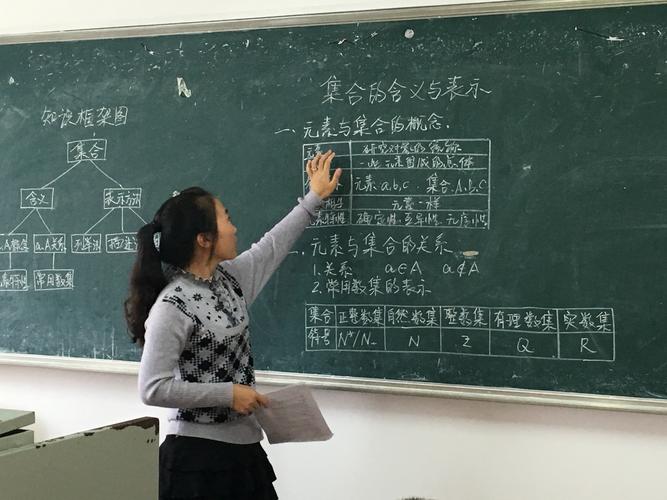 集合的含义与表示
知识框架图
集合
含义 表示方法
关系 列举法
常用数集
一、元素与集合的概念.
研究对象的统称
一些元素组成的总体
元素a,b,c 集合A,B,C
元素一样
确定性,互异性,无序性
元素与集合的关系
1.关系 a∈A a∉A
2.常用数集的表示
集合 正整数集 自然数集 整数集 有理数集 实数集
符号 N*/N₊ N Z Q R